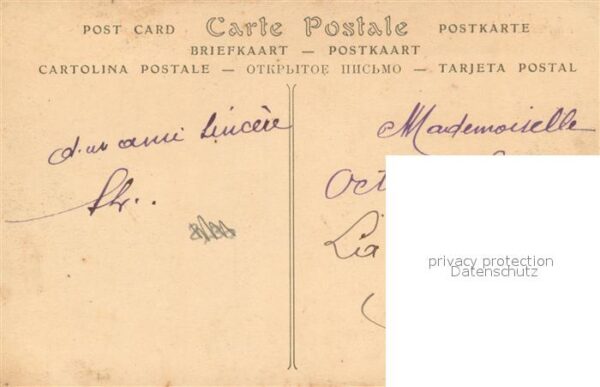 POST CARD Carte Postale POSTKARTE
BRIEFKAART — POSTKAART
CARTOLINA POSTALE — ОТКРЫТОЕ ПИСЬМО — TARJETA POSTAL
d'un ami sincère
Mademoiselle
Oct
Lia
privacy protection
Datenschutz